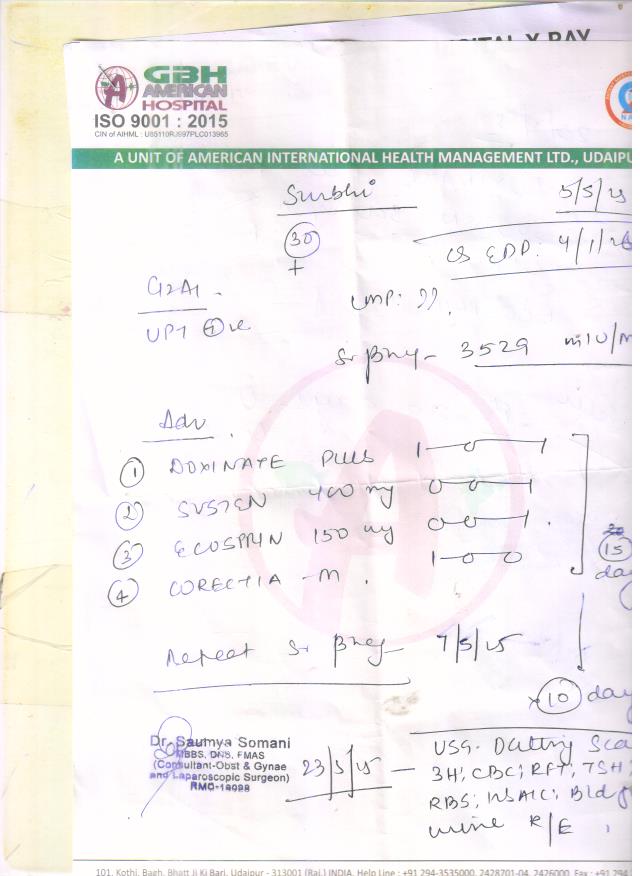 GBH
AMERICAN
HOSPITAL
ISO 9001 : 2015
CIN of AIHML : U85110RJ997PLC013965
A UNIT OF AMERICAN INTERNATIONAL HEALTH MANAGEMENT LTD., UDAIPU
Surbhi 5/5/25
30
CS EDD: 4/1/26
G2A1
LMP: ??
UPT +ve
Sr βhcg - 3529 mIU/m
Adv
1 DOXINATE PLUS 1-0-1
2 SUSTEN 400 mg 0-0-1
3 ECOSPRIN 150 mg 0-0-1
4 CORECTIA-M. 1-0-0
15
day
Repeat Sr βhcg 7/5/25
x 10 day
Dr. Saumya Somani
MBBS, DNB, FMAS
(Consultant-Obst & Gynae
and Laparoscopic Surgeon)
RMC-18028
23/5/25 - USG. Dating Sca
3H; CBC; RFT; TSH
RBS; HbA1C; Bldg
urine R/E
101, Kothi, Bagh, Bhatt Ji Ki Bari, Udaipur - 313001 (Raj.) INDIA, Help Line : +91 294-3535000, 2428701-04, 2426000, Fax : +91 294